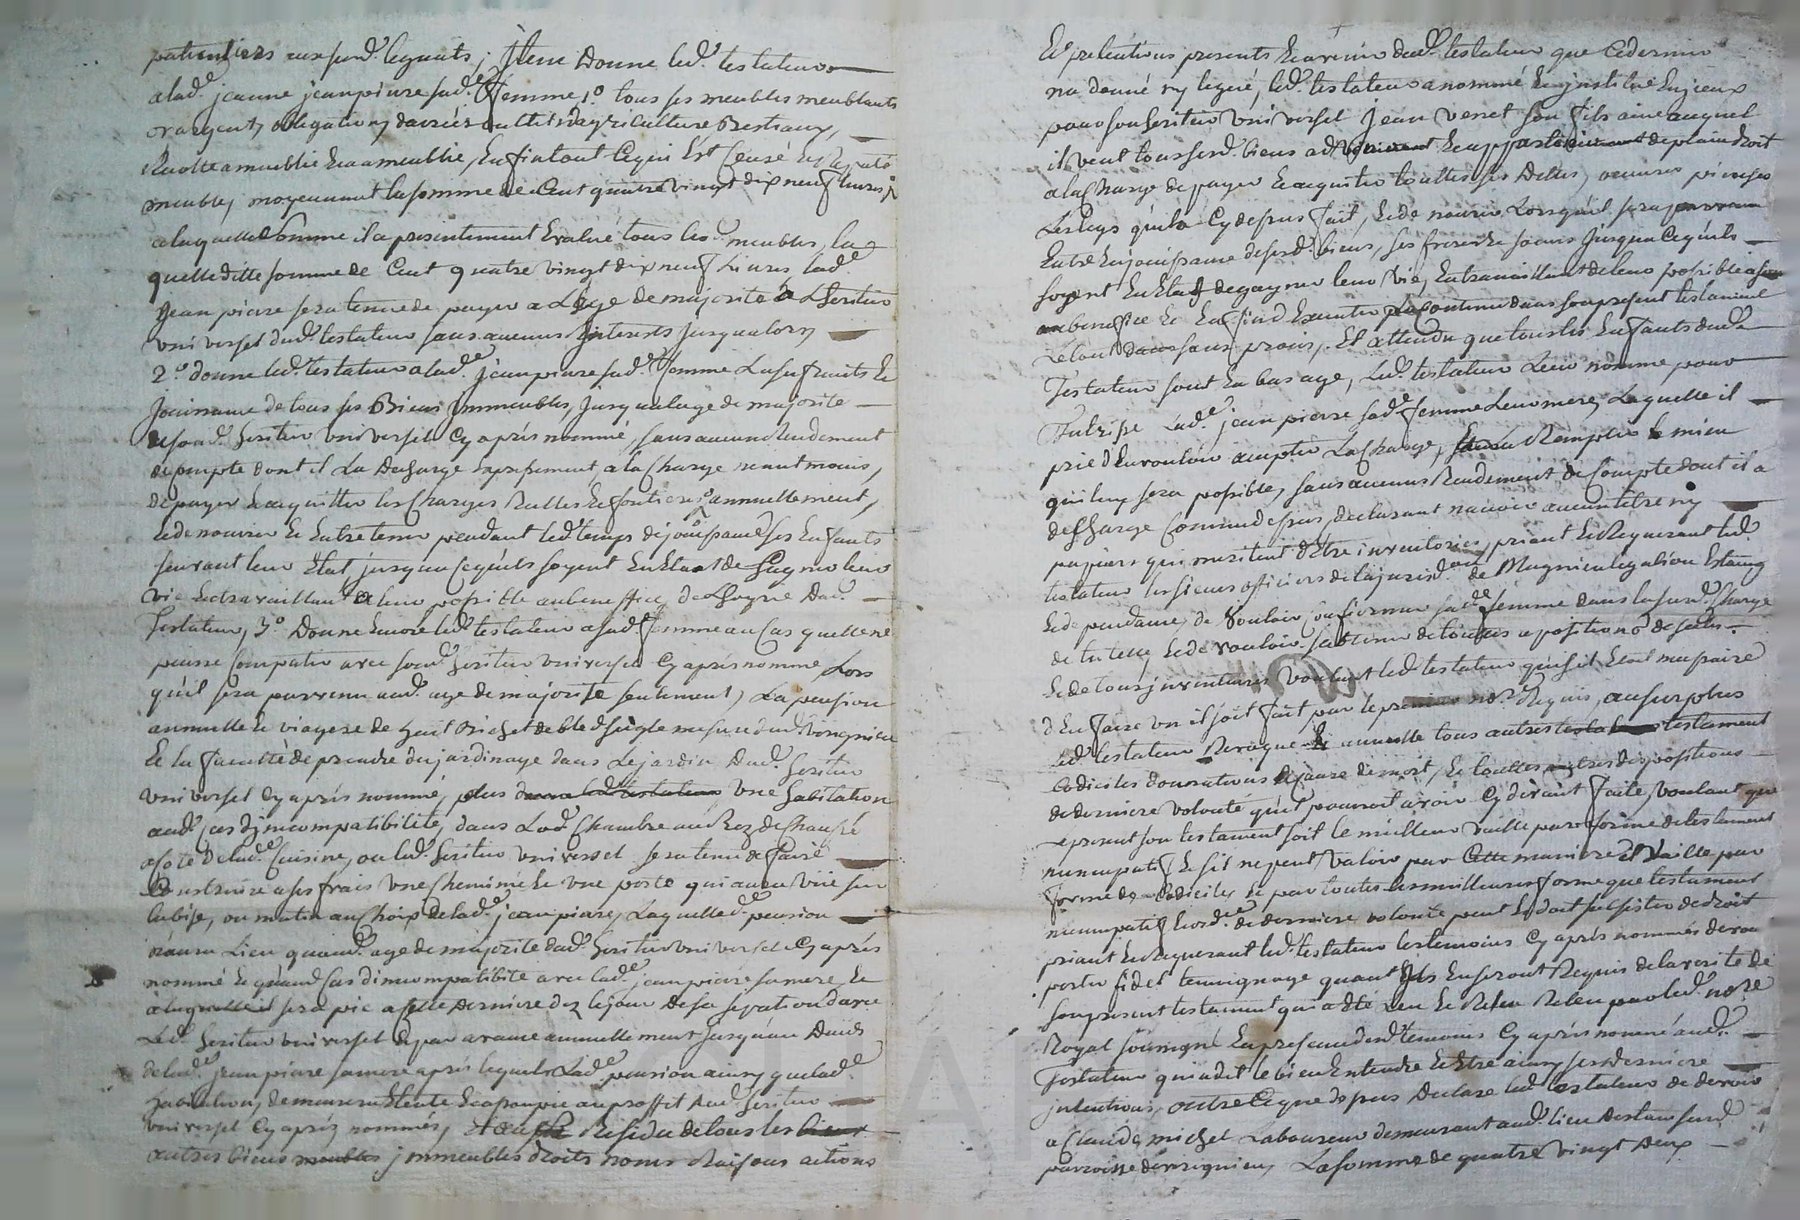 particuliers susd.s leguats, Item Donne led. testateur
a lad.e jeanne jeanpierre sad.e femme 1.o tous ses meubles meublants
or argents obligations danrées outtils d'agriculture Bestiaux,
Recolte ameublie Enfin tout Ce qui Est Censé Et Reputé
meubles, moyennant la somme de Cent quatre vingt dix neuf livres,
a laquelle somme il a presentement Evalué tous lesd. meubles, la
quelle ditte somme de Cent quatre vingt dix neuf Livres lad.e
jeanpierre sera tenue de payer a L'age de majorité a L'heritier
universel dud. testateur sans aucuns Interests jusqu'alors
2.o donne led. testateur a lad.e jeanpierre sad. femme L'usufruits Et
Jouissance de tous ses Biens Immeubles, jusqu'a l'age de majorité
de sond. heritier universel Cy après nommé, sans aucun Rendement
de Compte dont il La Decharge Expressement a la Charge neantmoins,
de payer Et acquitter les Charges Reelles Et foncieres annuellement,
Et de nourrir Et Entretenir pendant led. temps de jouissance ses Enfants
suivant leur Etat, jusqu'a Ce qu'ils soyent En Etat de Gagner leur
vie En travaillant a leur possible au beneffice de L'hoyrie Dud.
Testateur, 3.o Donne Encore led. testateur a sad. femme au Cas quelle ne
puisse Compatir avec sond. heritier universel Cy après nommé Lors
qu'il sera parvenu aud. age de majorité seulement, La pension
annuelle Et viagere de huit Bichet de bled seigle mesure dud.
Et la faculté de prendre du jardinage dans Le jardin Dud. heritier
universel Cy après nommé, plus une habitation
aud. Cas d'Incompatibilité, dans Lad. Chambre au Rez de Chaussé
a coté de lad.e Cuisine, ou led. heritier universel sera tenu de faire
Construire a ses frais une Cheminée Et une porte qui aura vüe sur
la bise, ou matin au Choix de lad.e jeanpierre, Laquelle d.e pension
n'aura Lieu qu'aud. age de majorité dud. heritier universel Cy après
nommé Et qu'aud. Cas d'Incompatibilité avec lad.e jeanpierre sa mere, Et
a laquelle il sera payé a cette Derniere dez le jour de sa separation d'avec
Led. heritier universel Et par avance annuellement jusqu'au Deceds
de lad.e jeanpierre sa mere après lequel Lad.e pension ainsy que lad.e
habitation, demeurera Eteinte Et au proffit dud. heritier
universel Cy après nommés, Et au Residu de tous les
autres biens immeubles droits noms Raisons actions
Et pretentions presents Et avenir dud. testateur que Ce dernier
n'a donné ny legué, led. testateur a nommé Et institué Enjeux
pour son heritier universel Jean venet son fils ainé auquel
il veut tous sesd. biens Et appartiennent de plain droit
a la Charge de payer Et acquitter touttes ses Dettes, oeuvres pieuses
Les legs qu'il a Cy dessus fait, Et de nourrir Lorsqu'il sera
Entré En jouissance desesd. biens, ses freres Et soeurs jusqu'a Ce qu'ils
soyent En Etat de gagner leur vie, En travaillant de leur possible a son
benefice Et Contenu dans son present testament
Le tout sans fraus, Et attendu que tous les Enfants dud.
Testateur sont En bas age, Led. testateur Leur nomme pour
Tutrisse Lad.e jeanpierre sad.e femme Leur mere, Laquelle il
prie d'En vouloir accepter La Charge, Et La Remplir le mieu
qu'il luy sera possible, sans aucuns Rendement de Compte dont il a
decharge Comme dessus, declarant n'avoir aucun titre ny
papiers qui meritent d'Etre inventoriés, priant Et Requerant led.
testateur les sieurs officiers de la jurisd.on de Magnieu
Et dependances, de vouloir Confirmer sad.e femme dans lasusd. Charge
de tutelle, Et de vouloir de touttes apositions de scellés
Et de tous inventaires voulant led. testateur qu'il Etoit necessaire
d'En faire un il soit fait par le premier no.re Requis, au surplus
Led. testateur Revoque Et annulle tous autres testament
Codiciles donnations a Cause de mort, Et touttes autres dispositions
de derniere volonté qu'il pourroit avoir Cy devant faite, voulant que
le present son testament soit le meilleur vaille par forme de testament
nuncupatif Et s'il ne peut valoir par Cette maniere Et vaille par
forme de Codiciles Et par toutes Les meilleures forme que testament
nuncupatif Et ord.re de derniere volonté peut Et doit subsister de droit
priant Et Requerant led. testateur les temoins Cy après nommés d'En
porter fidel temoignage quant Ils En seront Requis de la verité de
son present testament qui a Eté Leu Et Releu par led. no.re
Royal soussigné En presence desd. temoins Cy après nommé aud.
Testateur qui a dit le bien Entendre Et Etre ainsy ses dernieres
intentions, outre Ce que dessus Declare led. testateur de devoir
a Claude michel Laboureur demeurant aud. lieu
parroisse La somme de quatre vingt deux